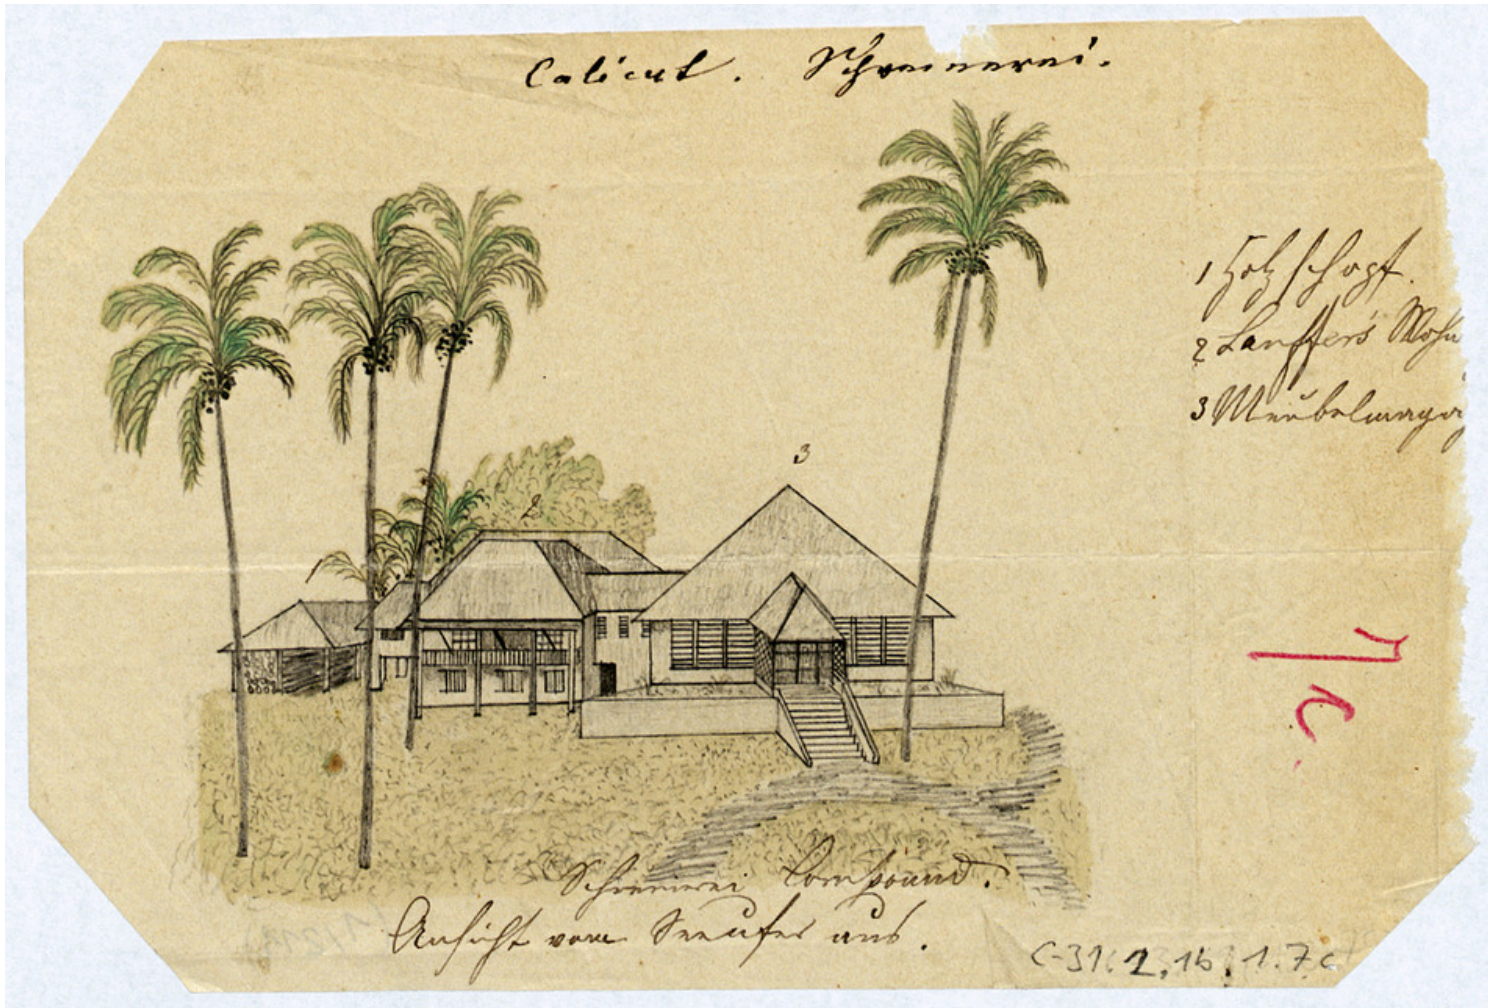 Calicut. Schreinerei.
1 Holzschopf.
2 Lauffer's Wohn
3 Meubelmagaz
3
2
1
Schreinerei Compound.
Ansicht vom Seeufer aus.
C-31.2,16,1.7c